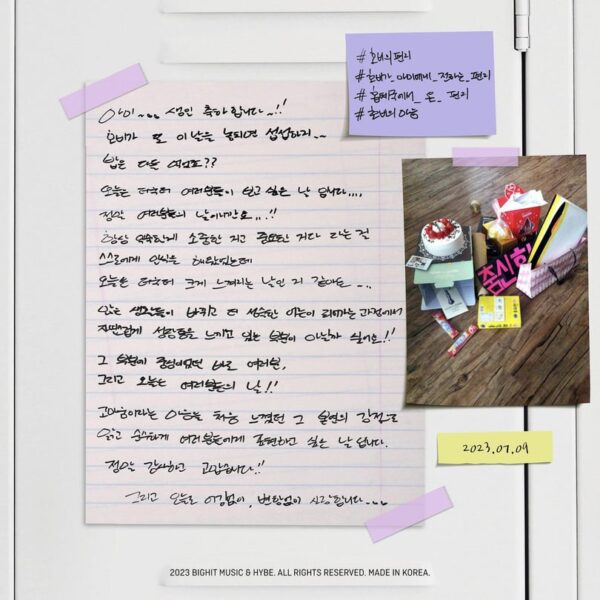 #호비의편지
#호비가_아미에게_전하는_편지
#홉필국에서_온_편지
#호비의 마음
아미... 생일 축하합니다..!!
호비가 또 이날을 놓치면 섭섭하지..
밥은 다들 먹었죠??
오늘은 더욱더 여러분들이 보고 싶은 날 입니다....
정말 여러분들의 날이니깐요...!!
항상 익숙한게 소중한 거고 중요한 거다 라는 걸
스스로에게 인식을 해왔었는데
오늘은 더욱더 크게 느껴지는 날인 거 같아요...
많은 생각들이 바뀌고 더 성숙한 어른이 되어가는 과정에서
자연스럽게 성장통을 느끼고 있는 호비이 아닐까 싶어요!!
그 속에 중심이었던 바로 여러분,
그리고 오늘은 여러분들의 날!!
고마움이라는 마음을 처음 느꼈던 그 날의 감정으로
맑고 순수하게 여러분들에게 표현하고 싶은 날입니다.
정말 감사하고 고맙습니다!!
그리고 오늘도 어김없이, 변함없이 사랑합니다....
출신한
2023.07.09
2023 BIGHIT MUSIC & HYBE. ALL RIGHTS RESERVED. MADE IN KOREA.